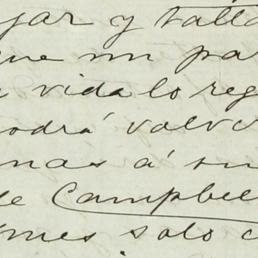 jar y talla
que un pa
vida lo reg
odrá volve
nas á su
de Campbel
mes solo c